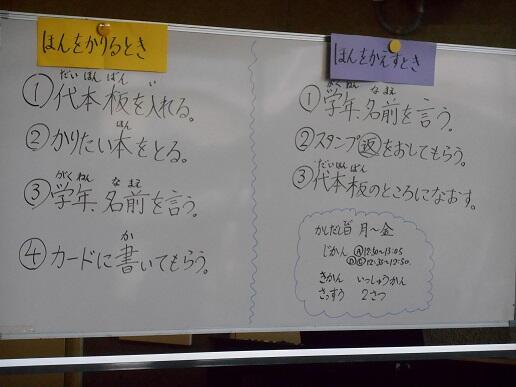 ほんをかりるとき
①代本板を入れる。
だいほんばん い
②かりたい本をとる。
ほん
③学年、名前を言う。
がくねん なまえ
④カードに書いてもらう。
か
ほんをかえすとき
①学年、名前を言う。
がくねん なまえ
②スタンプ返をおしてもらう。
③代本板のところになおす。
だいほんばん
かしだし日 月～金
じかん Ⓐ12:50～13:05
12:35～12:50
きかん いっしゅうかん
さっすう 2さつ